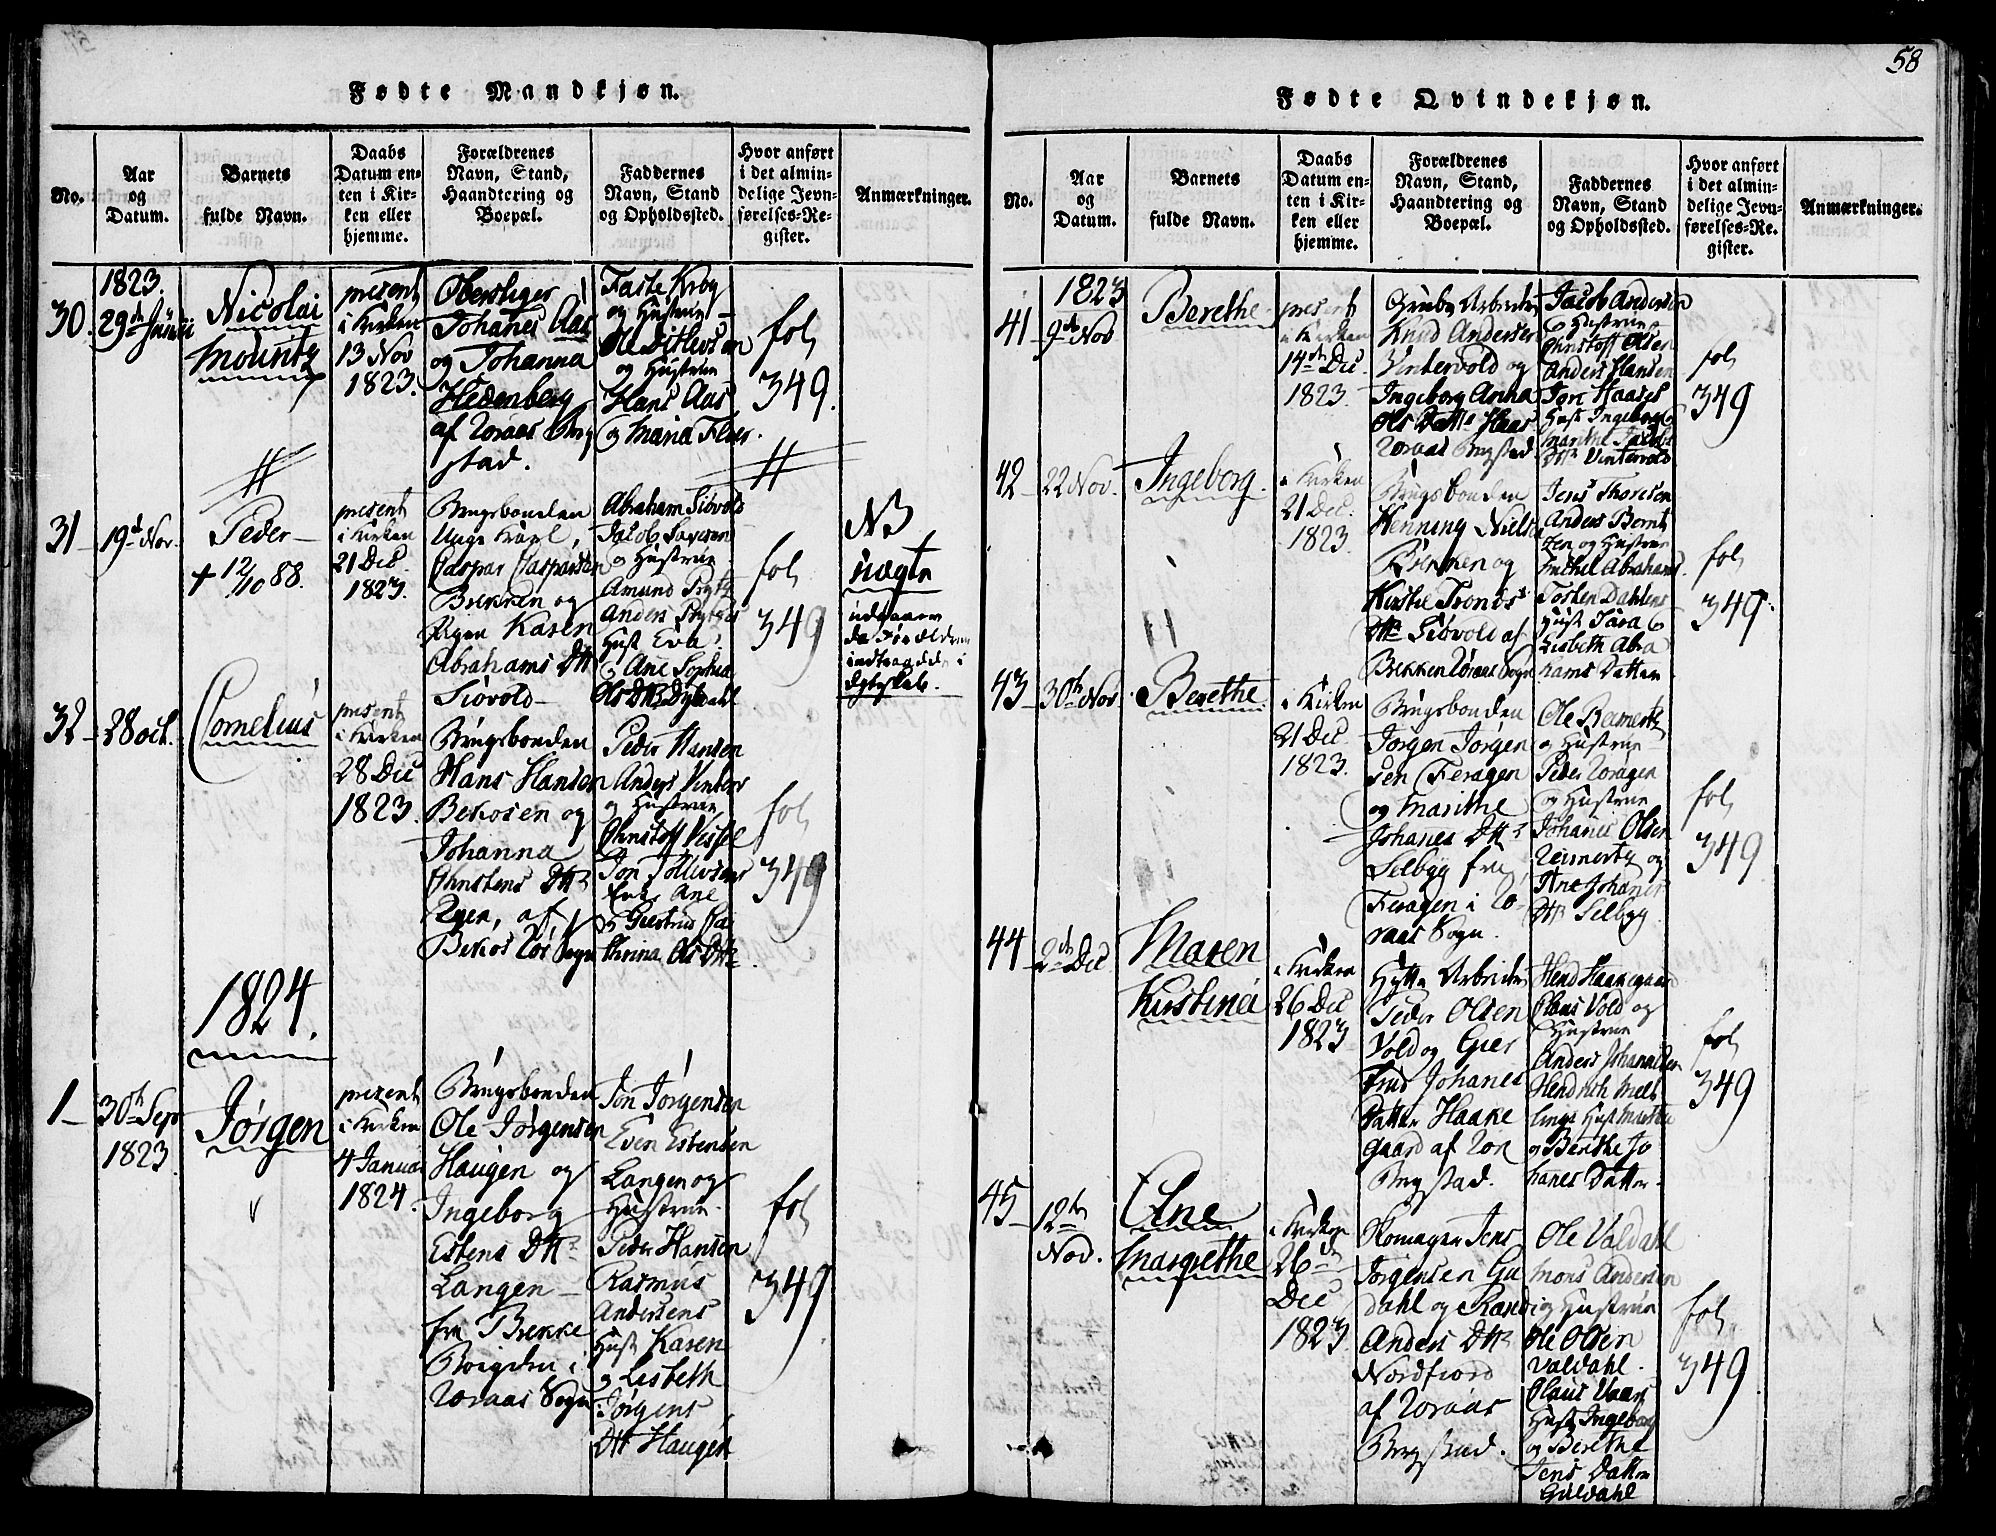 58
Fødte Mandkjøn.
No.
Aar
og
Datum.
Barnets
fulde Navn.
Daabs
Datum en-
ten i Kir-
ken eller
hjemme.
Forældrenes
Navn, Stand,
Haandtering og
Boepæl.
Faddernes
Navn, Stand
og Opholdssted.
Hvor anført
i det almin-
delige Jevn-
førelses-Re-
gister.
Anmærkninger.
30.
1823.
29de Junii
Nicolai
Mountz
present
i Kirken
13 Nov
1823.
Oberstiger
Johanes Aas
og Johanna
Hedenberg
af Roraas Berg
stad.
Faste Krog
og Hustrue
Ole Ditlevsen
og Hustrue
Hans Aas
og Maria Floer.
fol
349.
31
19de Nov.
Peder
+ 12/10 88.
present
i Kirken
21 Dec
1823.
Brugsbonden
Unge Karl,
Caspar Caspersen
Brekken og
Pigen Karen
Abrahams Dttr
Siøvold
Abraham Siøvold
Jacob
og Hustrue
Amund
Anders
Hust Eva
og Ane Sophia
Ols Dttr
fol
349
NB
uægte
udgaaer
da Forældrene
indtraadde i
Egteskab.
32
28 oct.
Cornelius
present
i Kirken
28 Dec
1823.
Brugsbonden
Hans Hansen
Bekosen og
Johanna
Christens Dttr
Ryen, af
Bekos Rør Sogn
Peder Hansen
Anders Vinters
og Hustrue
Christoff
Jon Tollevsens
Enke Ane
og Giertrud Ca
thrina Ols Dttr.
fol
349
1824.
1
30te Sep
1823
Jørgen
present
i Kirken
4 Januar
1824.
Brugsbonden
Ole Jørgensen
Haugen og
Ingeborg
Estens Dttr
Langen
fra Brekke
Boigden i
Roraas Sogn
Jon Jørgensen
Even Estensen
Langen og
Hustrue.
Peder Hansen
Rasmus
Andersens
Hust Karen
og Lisbeth
Jørgens
Dttr Haugen
fol
349
Fødte Qvindekjøn.
No.
Aar
og
Datum.
Barnets
fulde Navn.
Daabs
Datum en-
ten i Kir-
ken eller
hjemme.
Forældrenes
Navn, Stand,
Haandtering og
Boepæl.
Faddernes
Navn, Stand
og Opholdssted.
Hvor anført
i det almin-
delige Jevn-
førelses-Re-
gister.
Anmærkninger.
41
1823
9de Nov
Berethe
present
i Kirken
14de Dec
1823.
Grube Arbeider
Knud Andersen
Vintervold og
Ingeborg Anna
Ols Datter Haas
Roraas Bergstad
Jacob Andersen
og Hustrue
Christoff Olsen
Anders Hansen
Jon Haases
Hust Ingeborg og
Marithe Jacobs
Dttr Vintervold
fol
349
42
22 Nov.
Ingeborg.
i Kirken
21 Dec.
1823.
Brugsbonden
Henning Niels
Brekken og
Kirstie Tronds
Dttr Siøvold af
Brekken Roraas Sogn
Jens Thoresen
Anders Bernt
sen og Hustrue
Michel Abrahams.
Torsten Dahlens
Hust Sara og
Lisbeth Abra
hams Datter
fol
349.
43
30te Nov
Berethe
i Kirken
21 Dec
1823.
Brugsbonden
Jørgen Jørgen
sen Feragen
og Marithe
Johanes Dttr
Selbyg fra
Feragen i Ro-
raas Sogn.
Ole Reimertz
og Hustrue
Peder Roragen
og Hustrue
Johanes Olsen
Reimertz og
Ane Johanes
Dttr Selbyg.
fol
349
44
2de Dec
Maren
Kirstina
i Kirken
26 Dec
1823
Hytte Arbeider
Peder Olsen
Vold og Gier
trud Johanes
Datter Haake
gaard af Ror
Bergstad.
Hend Haagegaar
Claus Vold og
Hustrue
Anders Johannesen
Hendrich
Hust Marthe
og Berithe Jo
hanes Datter.
fol
349
45
12te
Nov.
Ane
Margrethe
i Kirken
26de
Dec
1823
Skomager Jens
Jørgensen Gul
dahl og Randi
Anders Dttr
Nordfiord
af Roraas
Bergstad.
Ole Valdahl
Mons Andersen
og Hustrue
Ole Olsen
Valdahl.
Claus Vaars
Hust Ingeborg
og Berethe
Jens Datter
Guldahl
fol
349